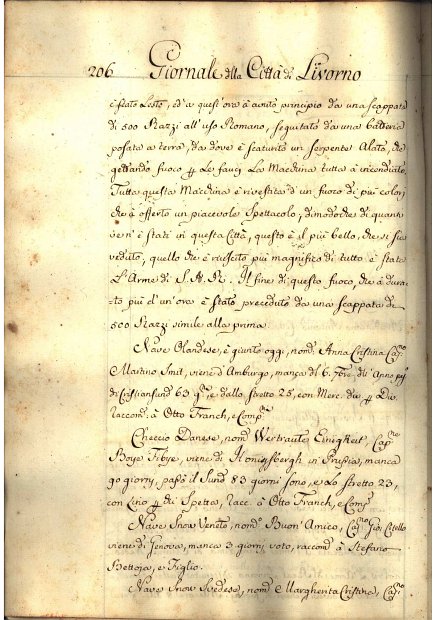 206 Giornale della Città di Livorno
è stato lesto, ed a quest' ora à avuto principio da una scappata
di 500 Razzi all' uso Romano, seguitato da una batteria
posata a terra, da dove è scaturito un serpente Alato, che
gettando fuoco le fauci La Macchina tutta à incendiato.
Tutta questa Macchina è rivestita d' un fuoco di più colori
che à offerto un piacevole Spettacolo, dimodoche di quanti
ve n' è stati in questa Città, questo è il più bello, che si sia
veduto, quello che è riuscito più magnifico di tutto è stato
L'Arme di S. A. R. Il fine di questo fuoco, che à dura-
to più d' un' ora è stato preceduto da una scappata di
500 Razzi simile alla prima.
Nave Olandese, è giunto oggi, nom. Anna Cristina Cap.no
Martino Smit, viene d' Amburgo, manca di 6. 7bre. dell' Anno pas.
di Cristiansund 63 g.ni e dallo stretto 25, con Merc. div.
raccom. à Otto Franch, e Comp.
Checcio Danese, nom. Wertraute Einigkeit, Cap.no
Boye Tibye, viene di Konigsbergh in Prussia, manca
90 giorni, passò il Sund 83 giorni sono, e lo stretto 23,
con Lino di Spetta, racc. à Otto Franch, e Comp.
Nave Snow Veneto, nom. Buon' Amico, Cap.no Gio.
viene di Genova, manca 3 giorni, voto, raccom. à Stefano
Bettoja, e Figlio.
Nave Snow Svedese, nom. e Margherita Cristina, Cap.no